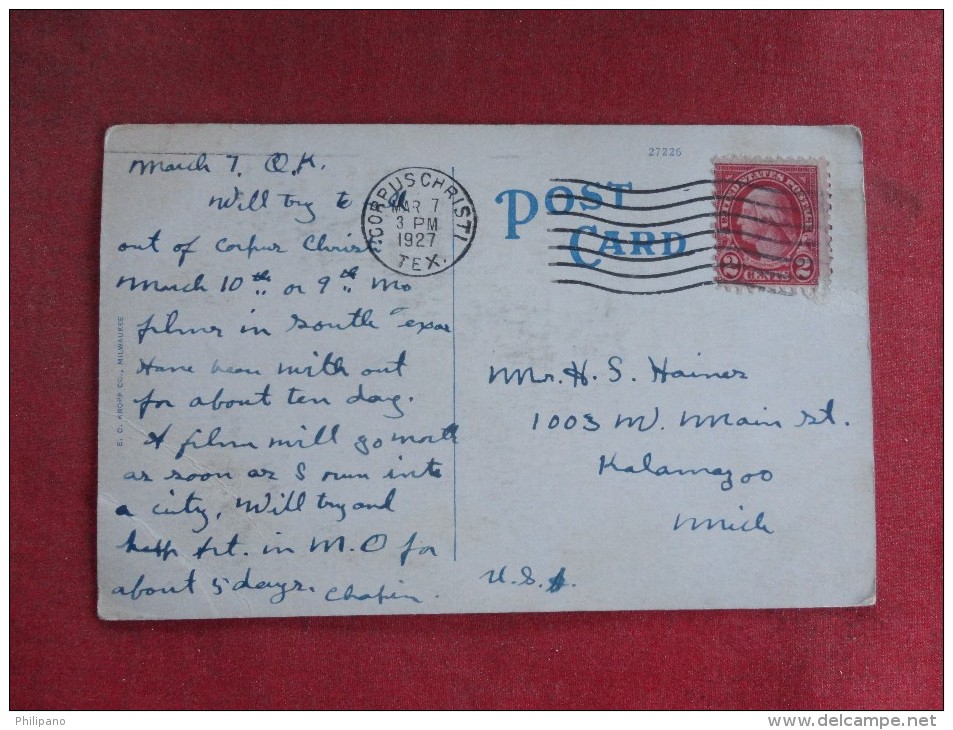 March 7. O.K.
Will try to
out of Corpus Chris
March 10th or 9th. No
films in South
Have been with out
for about ten day.
A film will go north
as soon as I run into
a city. Will try and
in M.O for
about 5 days. Chapin.
E. C. KROPP CO., MILWAUKEE
CORPUS CHRISTI
MAR 7
3 PM
1927
TEX.
27226
POST
CARD
UNITED STATES POSTAGE
2 CENTS 2
Mr. H. S. Hainer
1003 W. Main St.
Kalamazoo
Mich
U.S.A.
Philipano
www.delcampe.net